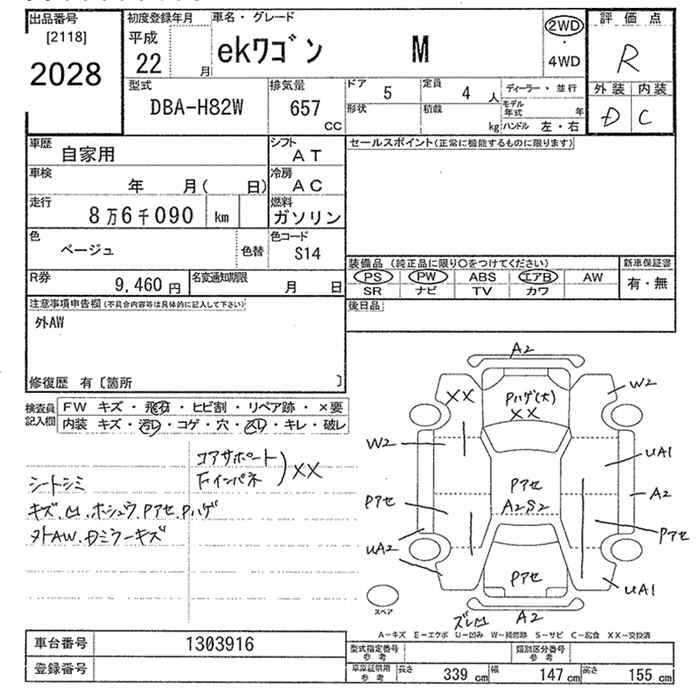 出品番号 初度登録年月 車名・グレード 評価点
[2118] 平成 22 月 ekワゴン M 2WD ・ 4WD R
2028
型式 排気量 ドア 5 定員 4 人 ディーラー・並行 外装 内装
DBA-H82W 657 CC 形状 積載 kg モデル年式 年 ハンドル 左・右 D C
車歴 自家用 シフト AT セールスポイント(正常に機能するものに限ります)
車検 年 月( 日) 冷房 AC
走行 8万6千090 km 燃料 ガソリン
色 ベージュ 色替 色コード S14
装備品 (純正品に限り○をつけてください) 新車保証書
PS PW ABS エアB AW 有・無
SR ナビ TV カワ
R券 9,460 円 名変通知期限 月 日
後日品
注意事項申告欄(不具合内容等は具体的に記入して下さい)
外AW
修復歴 有〔箇所 〕
検査員記入欄 FW キズ・飛石・ヒビ割・リペア跡・×要
内装 キズ・汚レ・コゲ・穴・スレ・キレ・破レ
コアサポート
Fインパネ ) XX
シートシミ
キズ、凹、ホシュウ、Pアセ、Pハゲ
外AW、日ミラーキズ
A2
XX
Pハゲ(大)
XX
W2
W2
UA1
Pアセ
A2S2
A2
Pアセ
Pアセ
UA2
Pアセ
UA1
スペア
ズレ凹
A2
A-キズ E-エクボ U-凹み W-補修跡 S-サビ C-腐食 XX-交換済
車台番号 1303916
登録番号
型式指定番号 参考 類別区分番号 参考
車庫証明用 参考 長さ 339 cm 幅 147 cm 高さ 155 cm